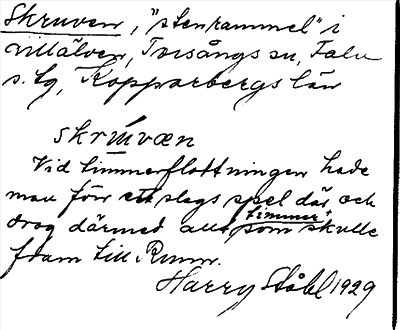 Skruven, "stenrammel" i
Lillälven, Torsångs sn, Falu
s. tg, Kopparbergs län
skrúvæn
Vid timmerflottningen hade
man förr ett slags spel där och
drog därmed allt timmer som skulle
fram till Runn.
Harry Ståhl 1929